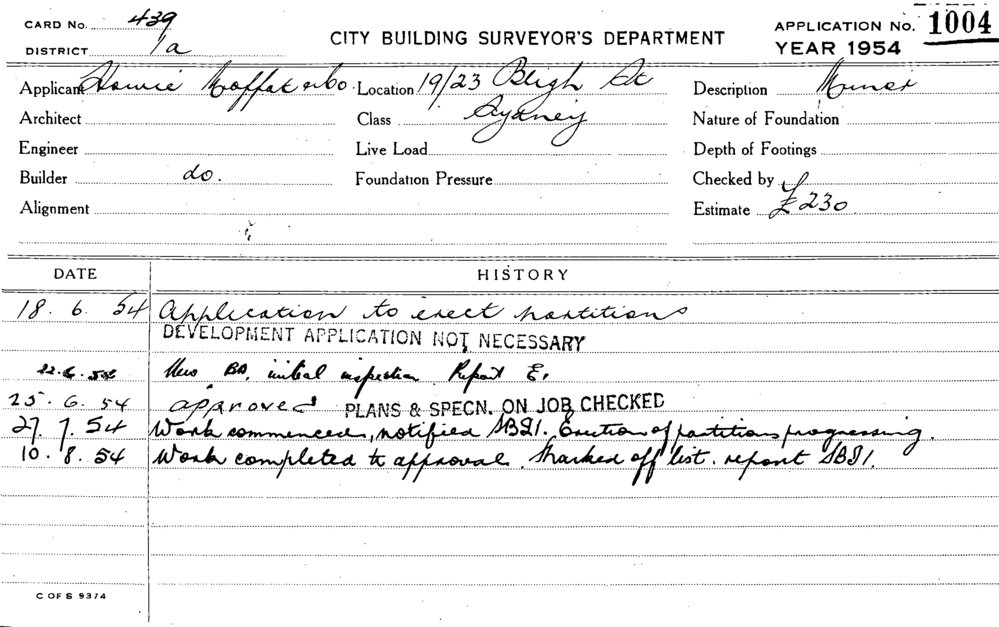 CARD No. 439
DISTRICT 1a
CITY BUILDING SURVEYOR'S DEPARTMENT
APPLICATION No. 1004
YEAR 1954
Applicant Howie Moffat & Co. Location 19/23 Bligh St Description Minor
Architect Class Sydney Nature of Foundation
Engineer Live Load Depth of Footings
Builder do. Foundation Pressure Checked by
Alignment Estimate £230
DATE HISTORY
18. 6. 54 Application to erect partitions
DEVELOPMENT APPLICATION NOT NECESSARY
22.6.54 initial inspection Report E.
25. 6. 54 approved PLANS & SPECN. ON JOB CHECKED
27. 7. 54 Work commenced, notified SBI. Erection of partitions progressing.
10. 8. 54 Work completed to approval. Marked off list. report SBI.
C OF S 9374